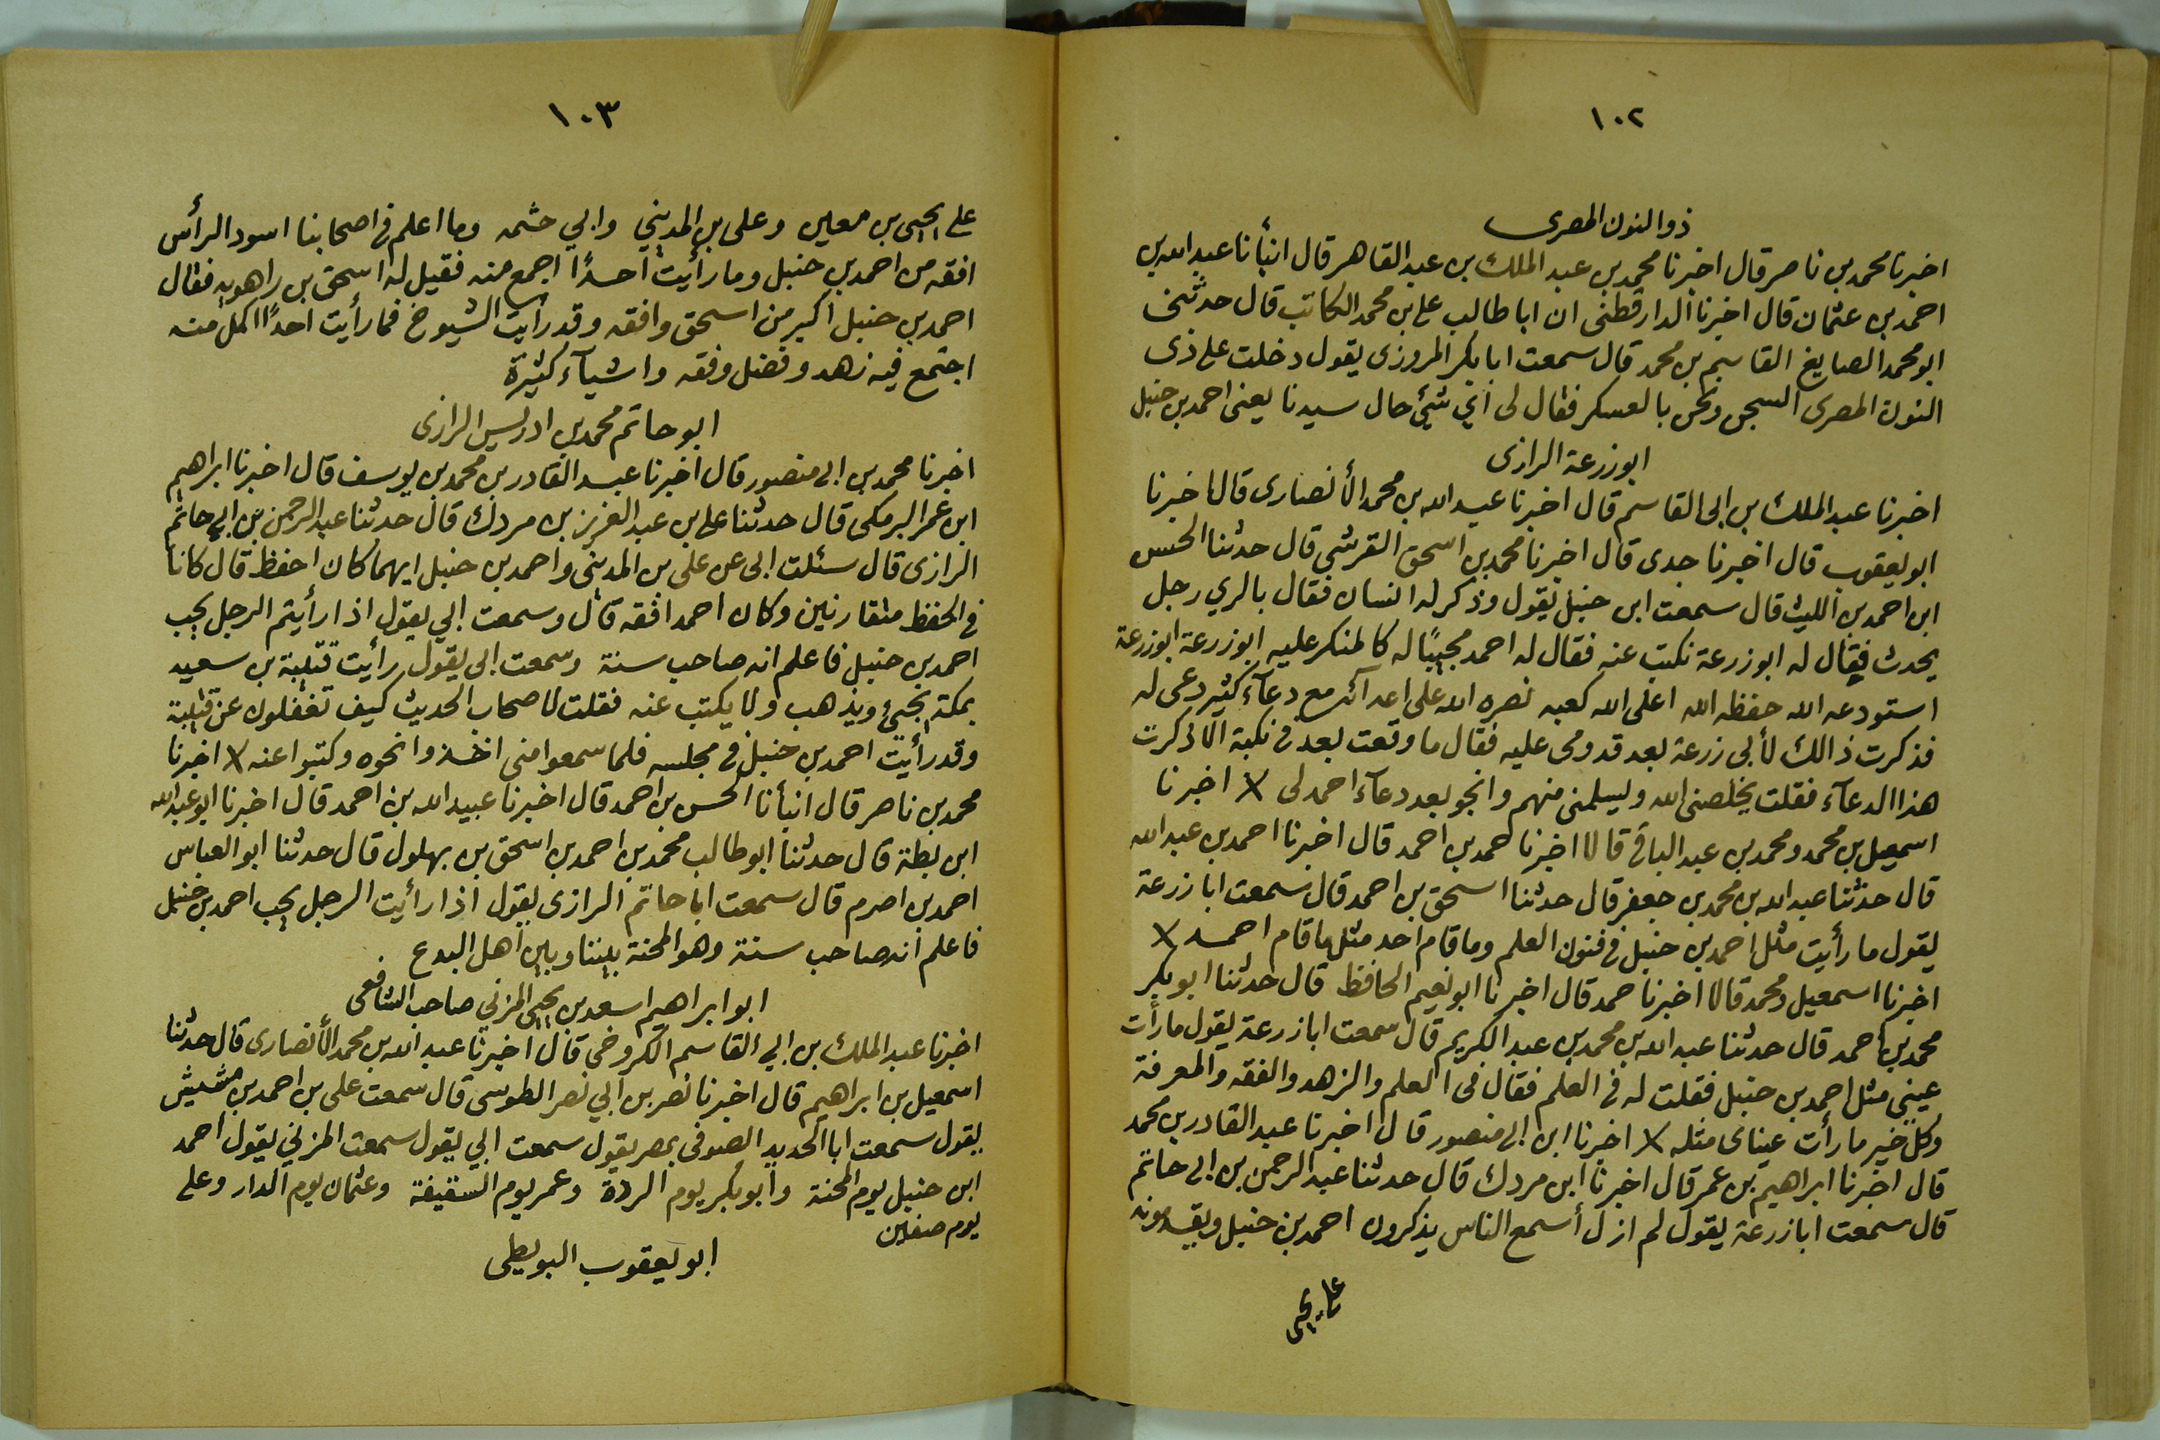 ١٠٢
ذو النون المصري
اخبرنا محمد بن ناصر قال اخبرنا محمد بن عبد الملك بن عبد القاهر قال انبأنا عبيد الله بن
احمد بن عثمان قال اخبرنا الدارقطني ان ابا طالب علي بن محمد الكاتب قال حدثني
ابو محمد الصايغ القاسم بن محمد قال سمعت ابا بكر المروزى يقول دخلت على ذى
النون المصرى السجن ونحن بالعسكر فقال لى اي شئ حال سيدنا يعنى احمد بن حنبل
ابو زرعة الرازى
اخبرنا عبد الملك بن ابى القاسم قال اخبرنا عبد الله بن محمد الأنصارى قال اخبرنا
ابو يعقوب قال اخبرنا جدى قال اخبرنا محمد بن اسحق القرشي قال حدثنا الحسن
ابن احمد بن الليث قال سمعت ابن حنبل يقول وذكر له انسان فقال بالري رجل
يحدث فقال له ابو زرعة نكتب عنه فقال له احمد مجيبًا له كالمنكر عليه ابو زرعة ابو زرعة
استودعه الله حفظه الله اعلى الله كعبه نصره الله على اعدآئه مع دعآء كثير دعى له
فذكرت ذالك لأبى زرعة بعد قدومى عليه فقال ما وقعت بعد فى نكبة الا ذكرت
هذا الدعآء فقلت يخلصنى الله وليسلمنى منهم وانجو بعد دعآء احمد لى X اخبرنا
اسمعيل بن محمد ومحمد بن عبد الباقى قالا اخبرنا حمد بن احمد قال اخبرنا احمد بن عبد الله
قال حدثنا عبد الله بن محمد بن جعفر قال حدثنا اسحق بن احمد قال سمعت ابا زرعة
يقول ما رأيت مثل احمد بن حنبل فى فنون العلم وما قام احد مثل ما قام احمد X
اخبرنا اسمعيل ومحمد قالا اخبرنا حمد قال اخبرنا ابو نعيم الحافظ قال حدثنا ابو بكر
محمد بن احمد قال حدثنا عبد الله بن محمد بن عبد الكريم قال سمعت ابا زرعة يقول ما رأت
عيني مثل احمد بن حنبل فقلت له فى العلم فقال فى العلم والزهد والفقه والمعرفة
وكل خير ما رأت عيناى مثله X اخبرنا ابن ابى منصور قال اخبرنا عبد القادر بن محمد
قال اخبرنا ابراهيم بن عمر قال اخبرنا ابن مردك قال حدثنا عبد الرحمن بن ابى حاتم
قال سمعت ابا زرعة يقول لم ازل أسمع الناس يذكرون احمد بن حنبل ويقدمونه
على يحيى
١٠٣
على يحيى بن معين وعلى بن المديني وابي خثمه وما اعلم فى اصحابنا اسود الرأس
افقه من احمد بن حنبل وما رأيت احدًا اجمع منه فقيل له اسحق بن راهويه فقال
احمد بن حنبل اكبر من اسحق وافقه وقد رأيت الشيوخ فما رأيت احدًا اكمل منه
اجتمع فيه زهد وفضل وفقه واشيآء كثيرة
ابو حاتم محمد بن ادريس الرازى
اخبرنا محمد بن ابى منصور قال اخبرنا عبد القادر بن محمد بن يوسف قال اخبرنا ابراهيم
ابن عمر البرمكى قال حدثنا على بن عبد العزيز بن مردك قال حدثنا عبد الرحمن بن ابي حاتم
الرازى قال سئلت ابى عن على بن المدينى واحمد بن حنبل ايهما كان احفظ قال كانا
فى الحفظ متقارنين وكان احمد افقه قال وسمعت ابي يقول اذا رأيتم الرجل يحب
احمد بن حنبل فاعلم انه صاحب سنة وسمعت ابى يقول رأيت قتيبة بن سعيد
بمكة يجيئ ويذهب ولا يكتب عنه فقلت لاصحاب الحديث كيف تغفلون عن قتيبة
وقد رأيت احمد بن حنبل فى مجلسه فلما سمعوا منى اخذوا نحوه وكتبوا عنه X اخبرنا
محمد بن ناصر قال انبأنا الحسن بن احمد قال اخبرنا عبيد الله بن احمد قال اخبرنا ابو عبد الله
ابن بطة قال حدثنا ابو طالب محمد بن احمد بن اسحق بن بهلول قال حدثنا ابو العباس
احمد بن اصرم قال سمعت ابا حاتم الرازى يقول اذا رأيت الرجل يحب احمد بن حنبل
فاعلم انه صاحب سنة وهو المحنة بيننا وبين اهل البدع
ابو ابراهيم اسعد بن يحيى المزني صاحب الشافعى
اخبرنا عبد الملك بن ابي القاسم الكروخى قال اخبرنا عبد الله بن محمد الأنصارى قال حدثنا
اسمعيل بن ابراهيم قال اخبرنا نصر بن ابي نصر الطوسى قال سمعت على بن احمد بن مشيش
يقول سمعت ابا الحديد الصوفى بمصر يقول سمعت ابي يقول سمعت المزني يقول احمد
ابن حنبل يوم المحنة وابو بكر يوم الردة وعمر يوم السقيفة وعثمان يوم الدار وعلى
يوم صفين
ابو يعقوب البويطى